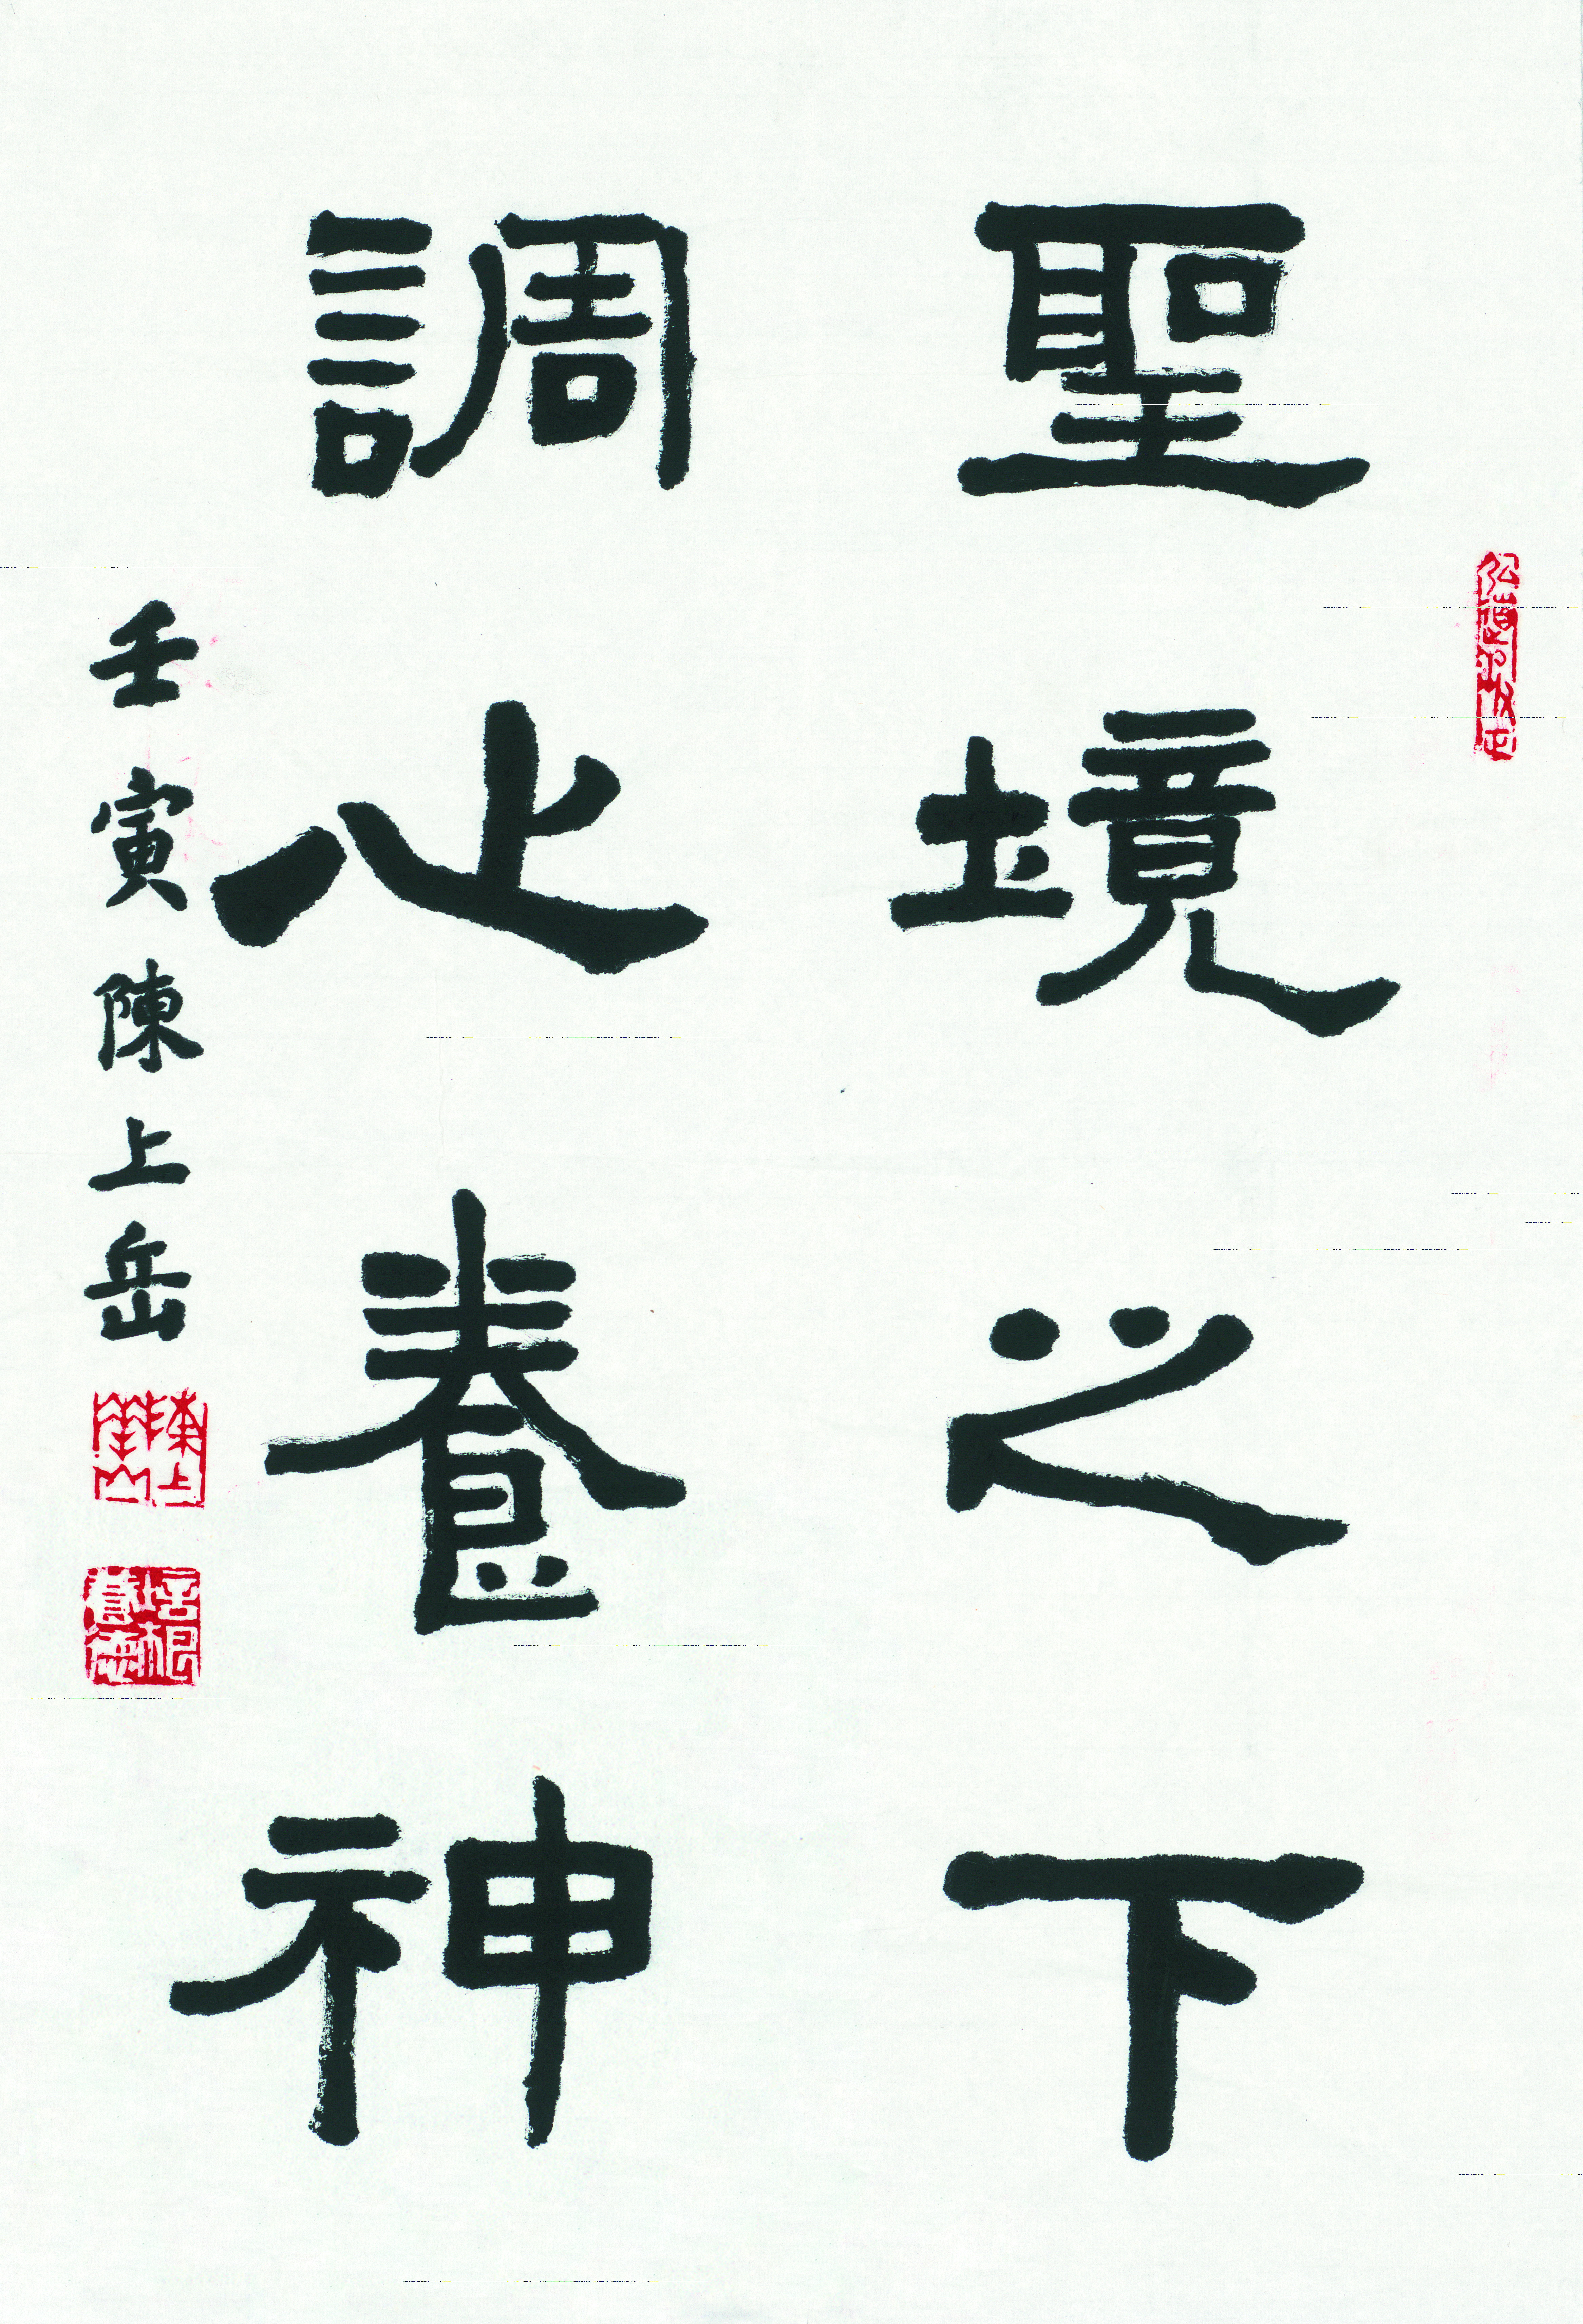 聖境之下
調心養神
壬寅陳上岳
陳上岳
培根養德